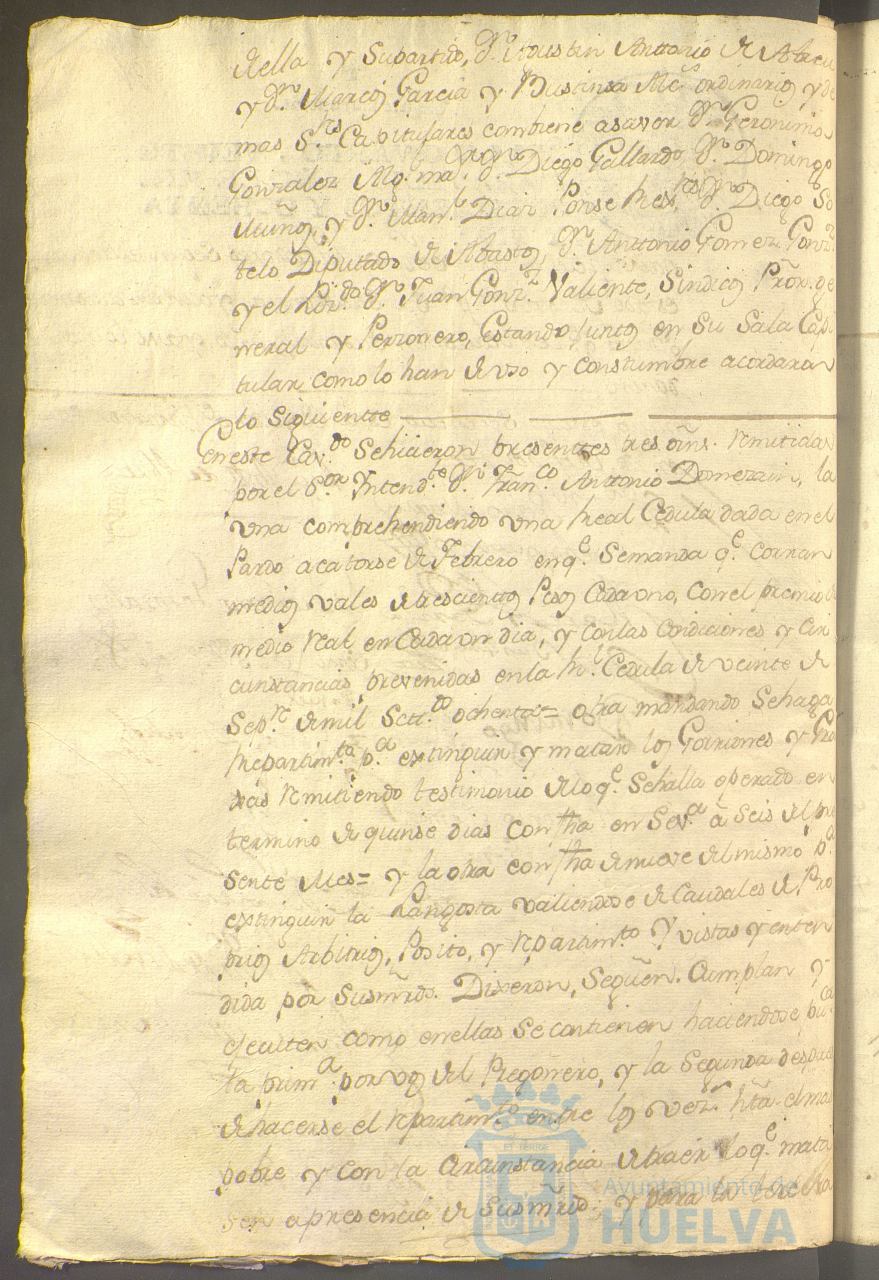 della y Supartido, Dn. Agustin Antonio de Abreu
y Dn. Marcos Garcia y Bustinza Alcs. ordinarios y de
mas Sres. Capitulares combiene asaver Dn. Geronimo
Gonzalez Alg. mar. Dn. Diego Gallardo, Dn. Domingo
Muñoz, y Dn. Manl. Diaz Ponse Rexres. Dn. Diego So
telo Diputado de Abastos, Dn. Antonio Gomez Gonz.
y el Lizdo. Dn. Juan Gonz. Valiente, Sindicos Pror. Ge
nneral y Perzonero, Estando juntos en Su Sala Capi
tular como lo han de uso y Constumbre acordaron
lo siguientte
En este Cavdo. Sehicieron presenttes tres orns. remitidas
por el Sor. Yntendte. Dn. Franco. Antonio Domezain, la
una comprehendiendo una Real Cedula dada en el
Pardo a catorse de Febrero en qe. Semanda qe. corran
medios vales de trescientos Pesos Cada uno, con el premio de
medio Real en Cada un dia, y con las Condiciones y Cir
cunstancias prevenidas en la Rl. Cedula de veinte de
Sepre. de mil Settos. ochenta= otra mandando Sehaga
Repartimto. pa. extinguir y matar los Gorriones y Gra
xas remitiendo testimonio de lo qe. Sehalla operado en
termino de quinse dias con fha en Seva. a Seis del pre
sente Mes= y la otra con fha de nueve del mismo pa.
extinguir la Langosta valiendose de Caudales de Pro
prios Arbitrios, Posito, y repartimto. Y vistas y enten
didas por Susmrds. Dixeron, Seguen. Cumplan y
ejecuten como en ellas Se contienen haciendose puca.
la prima. por vos del Pregonero, y la Segunda despues
de hacerse el repartimto. entre los vezs. hta. el mas
pobre y con la Circunstancia de traer lo qe. mata
sen a presencia de Susmrds. y para la tercera
Ayuntamiento de
HUELVA